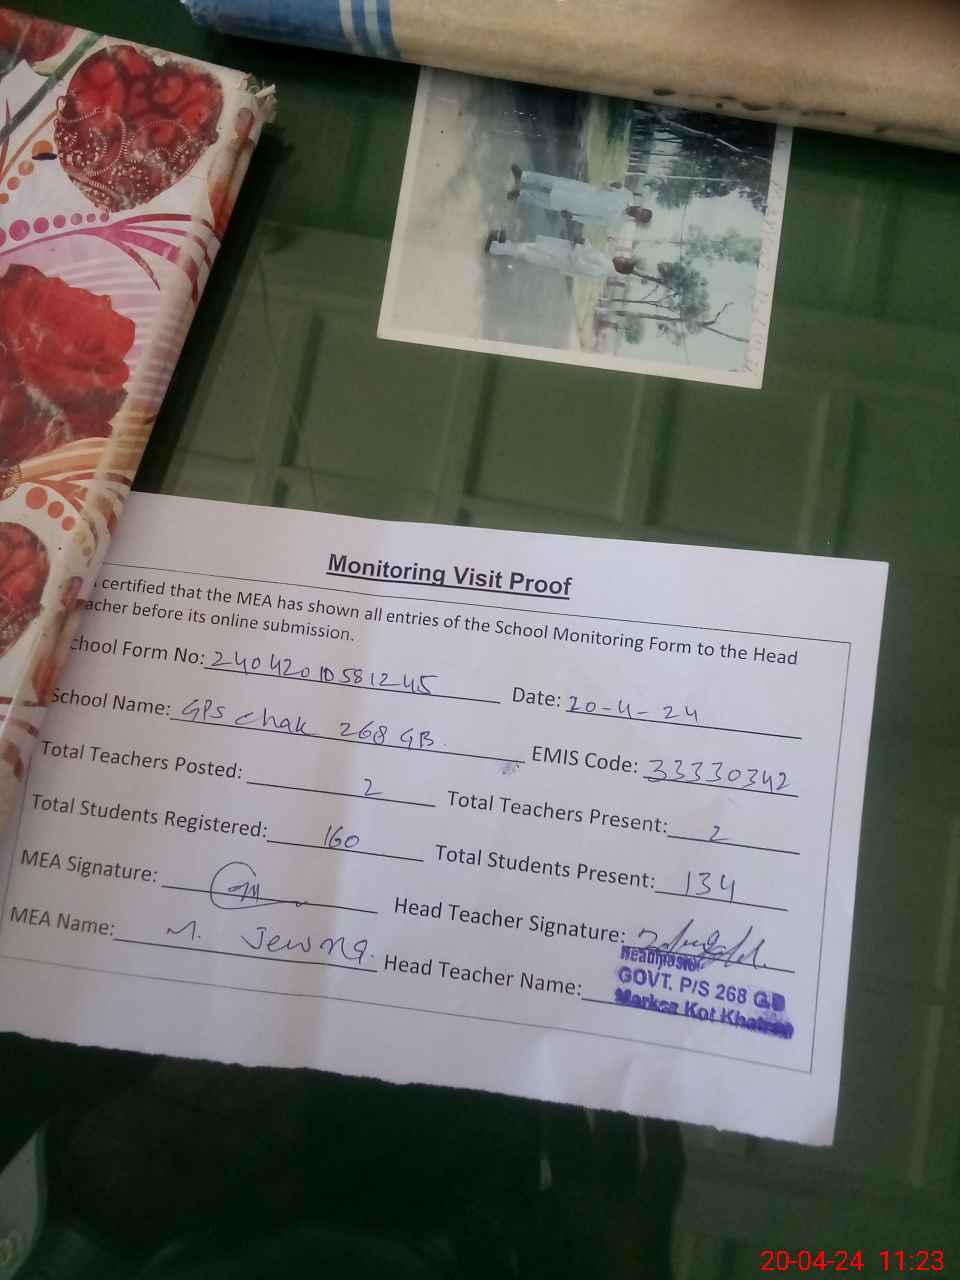 Monitoring Visit Proof
certified that the MEA has shown all entries of the School Monitoring Form to the Head
acher before its online submission.
chool Form No: 24042010581245 Date: 20-4-24
School Name: GPS Chak 268 GB. EMIS Code: 33330342
Total Teachers Posted: 2 Total Teachers Present: 2
Total Students Registered: 160 Total Students Present: 134
MEA Signature: Head Teacher Signature:
MEA Name: M. Head Teacher Name:
Headmaster
GOVT. P/S 268 GB
Markaz Kot
20-04-24 11:23